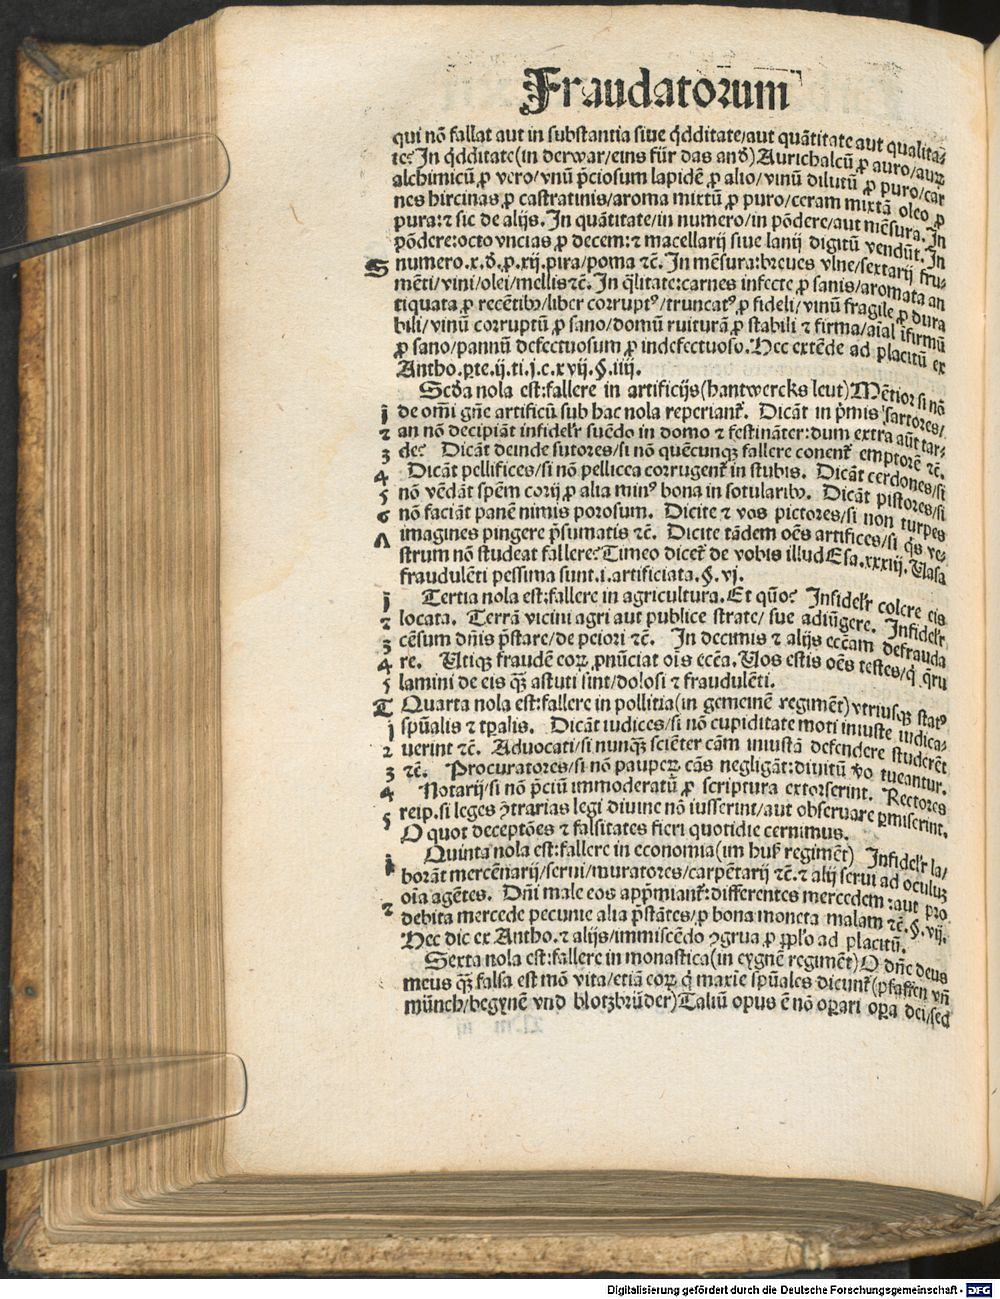 Fraudatorum
qui nō fallat aut in substantia siue q̄dditate/aut quātitate aut qualita⸗
te? In q̄dditate (in derwar/eins für das and̄) Aurichalcū ꝓ auro/aurꝫ
alchimicū ꝓ vero/vnū p̄ciosum lapidē ꝓ alio/vinū dilutū ꝓ puro/car
nes hircinas ꝓ castratinis/aroma mixtū ꝓ puro/ceram mixtā oleo ꝓ
pura: ⁊ sic de alijs. In quātitate/in numero/in pōdere/aut mēsura. In
pōdere: octo vncias ꝓ decem: ⁊ macellarij siue lanij digitū vendūt. In
S numero .x. d̄. ꝓ .xij. pira/poma ⁊c̄. In mēsura: breues vlne/sextarij fru⸗
mēti/vini/olei/mellis ⁊c̄. In q̄litate: carnes infecte ꝓ sanis/aromata an
tiquata ꝓ recētibꝰ/liber corruptꝰ/truncatꝰ ꝓ fideli/vinū fragile ꝓ dura
bili/vinū corruptū ꝓ sano/domū ruiturā ꝓ stabili ⁊ firma/aīal īfirmū
ꝓ sano/pannū defectuosum ꝓ indefectuoso. Hec extēde ad placitū ex
Antho. ꝑte .ij. ti. j. c. xvij. §. iiij.
Scd̄a nola est: fallere in artificijs (hantwercks leut) Mētior si nō
j de om̄i gn̄e artificū sub hac nola reperiant᷑. Dicāt in p̄mis sartores/
2 an nō decipiāt infidelr̄ suēdo in domo ⁊ festināter: dum extra aūt tar⸗
3 de? Dicāt deinde sutores/si nō quēcunqꝫ fallere conent᷑ emptorē ⁊c̄.
4 Dicāt pellifices/si nō pellicea corrugent᷑ in stubis. Dicāt cerdones/si
5 nō vēdāt spēm corij ꝓ alia minꝰ bona in sotularibꝰ. Dicāt pistores/si
6 nō faciāt panē nimis porosum. Dicite ⁊ vos pictores/si non turpes
Λ imagines pingere p̄sumatis ⁊c̄. Dicite tādem oēs artifices/si q̄s ve⸗
strum nō studeat fallere? Timeo dicet᷑ de vobis illud Esa. xxxij. Uasa
fraudulēti pessima sunt .i. artificiata. §. vj.
j Tertia nola est: fallere in agricultura. Et quō? Infidelr̄ colere eis
2 locata. Terrā vicini agri aut publice strate/ sue adiūgere. Infidelr̄
3 cēsum dn̄is p̄stare/de peiori ⁊c̄. In decimis ⁊ alijs ecc̄am defrauda
4 re. Utiqꝫ fraudē eoꝝ ꝓnūciat ois ecc̄a. Uos estis oēs testes/q̄ q̄ru
5 lamini de eis qꝫ̄ astuti sint/dolosi ⁊ fraudulēti.
T Quarta nola est: fallere in pollitia (in gemeinē regimēt) vtriusqꝫ statꝰ
j sp̄ualis ⁊ tꝑalis. Dicāt iudices/si nō cupiditate moti iniuste iudica⸗
2 uerint ⁊c̄. Aduocati/si nunqꝫ sciēter cām iniustā defendere studerēt
3 ⁊c̄. Procuratores/si nō pauꝑꝝ cās negligāt: diuitū v̄o tueantur.
4 Notarij/si nō p̄ciū immoderatū ꝓ scriptura extorserint. Rectores
5 reip. si leges ꝯtrarias legi diuine nō iusserint/aut obseruare ꝑmiserint.
O quot deceptōes ⁊ falsitates fieri quotidie cernimus.
j Quinta nola est: fallere in economia (im huß regimēt) Infidelr̄ la/
borāt mercēnarij/serui/muratores/carpētarij ⁊c̄. ⁊ alij serui ad oculuꝫ
oīa agētes. Dn̄i male eos app̄miant᷑: differentes mercedem: aut pro
2 debita mercede pecunie alia p̄stātes/ꝓ bona moneta malam ⁊c̄. §. vij.
Hec dic ex Antho. ⁊ alijs/immiscēdo ꝯgrua ꝓ pp̄lo ad placitū.
Sexta nola est: fallere in monastica (in eygnē regimēt) O dn̄e deus
meus qꝫ̄ falsa est mō vita/etiā eoꝝ q̄ maxīe sp̄uales dicunt᷑ (pfaffen vn̄
münch/begynē vnd blotzbrüder) Taliū opus ē nō oꝑari oꝑa dei/sed
Digitalisierung gefördert durch die Deutsche Forschungsgemeinschaft - DFG